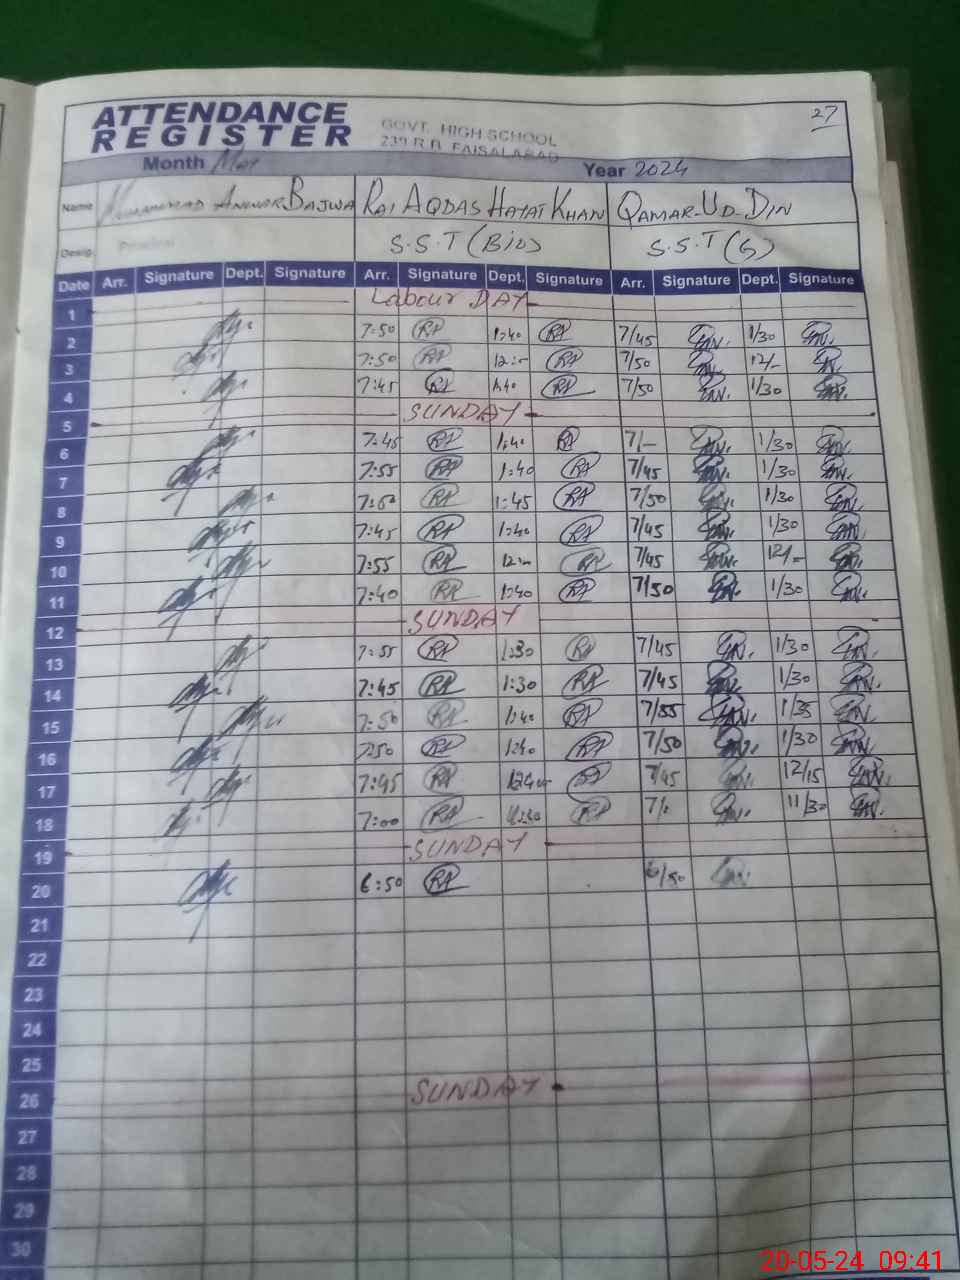 27
ATTENDANCE
REGISTER
GOVT. HIGH SCHOOL
239 R.B. FAISALABAD
Month May Year 2024
Name MUHAMMAD ANWAR BAJWA RAI AQDAS HAYAT KHAN QAMAR-UD-DIN
Desig. Principal S.S.T (Bio) S.S.T (G)
Date Arr. Signature Dept. Signature Arr. Signature Dept. Signature Arr. Signature Dept. Signature
1 Labour DAY
2 7:50 RA 1:40 RA 7/45 1/30
3 7:50 RA RA 7/50 12/-
4 7:45 RA 1:40 RA 7/50 1/30
5 SUNDAY
6 7:45 RA 1:40 RA 7/- 1/30
7 7:55 RA 1:40 RA 7/45 1/30
8 RA 1:45 RA 7/50 1/30
9 7:45 RA 1:40 RA 7/45 1/30
10 7:55 RA RA 7/45 12/-
11 7:40 RA 1:40 RA 7/50 1/30
12 SUNDAY
13 7:55 RA 1:30 RA 7/45 1/30
14 7:45 RA 1:30 RA 7/45 1/30
15 7:50 RA 1:40 RA 7/55 1/35
16 7:50 RA 1:40 RA 7/50 1/30
17 7:45 RA RA 7/45 12/15
18 7:00 RA 11:30 RA 11/30
19 SUNDAY
20 6:50 RA 6/50
21
22
23
24
25
26 SUNDAY
27
28
29
30
20-05-24 09:41